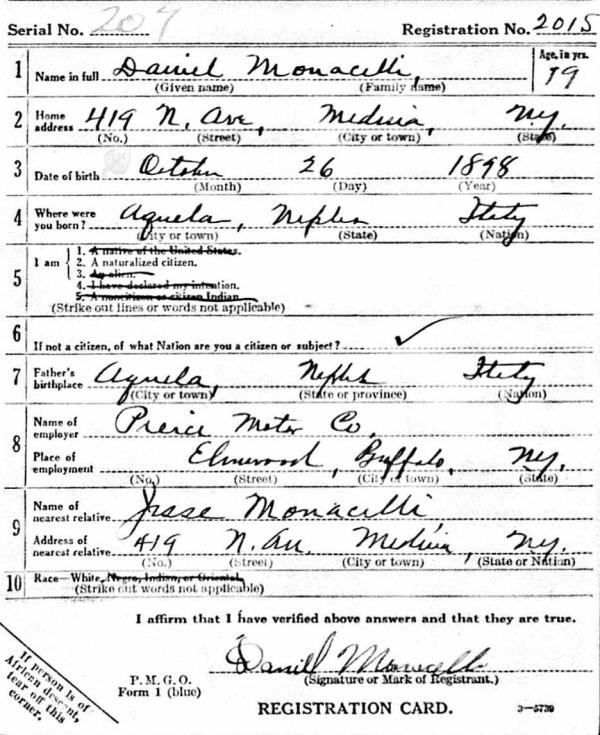 Serial No. 207 Registration No. 2015
1 Name in full Daniel Monacelli, Age, in yrs. 19
(Given name) (Family name)
2 Home address 419 N. Ave, Medina, N.Y.
(No.) (Street) (City or town) (State)
3 Date of birth October 26 1898
(Month) (Day) (Year)
4 Where were you born? Aquela, Neples Itely
(City or town) (State) (Nation)
5 I am { 1. A native of the United States.
2. A naturalized citizen.
3. An alien.
4. I have declared my intention.
5. A noncitizen or citizen Indian.
(Strike out lines or words not applicable)
6 If not a citizen, of what Nation are you a citizen or subject? ✓
7 Father's birthplace Aquela, Neples Itely
(City or town) (State or province) (Nation)
8 Name of employer Pierce Motor Co.
Place of employment Elmwood, Buffalo, N.Y.
(No.) (Street) (City or town) (State)
9 Name of nearest relative Jesse Monacelli,
Address of nearest relative 419 N. Av. Medina, N.Y.
(No.) (Street) (City or town) (State or Nation)
10 Race—White, Negro, Indian, or Oriental.
(Strike out words not applicable)
I affirm that I have verified above answers and that they are true.
Daniel Monacelli
P. M. G. O. (Signature or Mark of Registrant.)
Form 1 (blue)
REGISTRATION CARD. 3—5739
If person is of
African descent,
tear off this
corner.